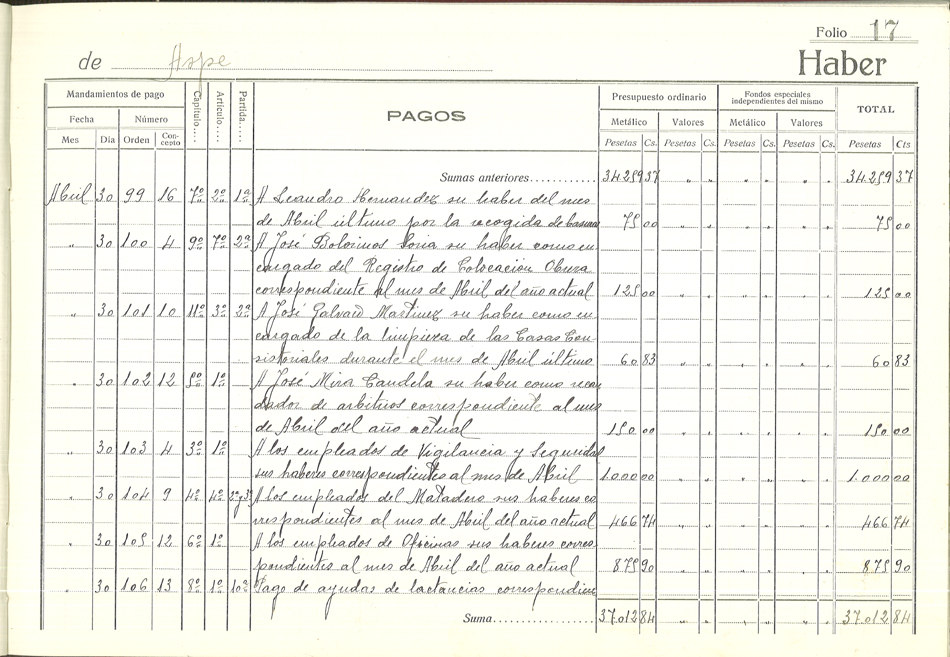 Folio 17
de Aspe Haber
Mandamientos de pago Capítulo.... Artículo.... Partida.... PAGOS Presupuesto ordinario Fondos especiales independientes del mismo TOTAL
Fecha Número Metálico Valores Metálico Valores
Mes Día Orden Concepto Pesetas Cs. Pesetas Cs. Pesetas Cs. Pesetas Cs. Pesetas Cts
Sumas anteriores............ 34259 37 " " " " " " 34.259 37
Abril 30 99 16 7º 2º 1ª A Leandro Hernandez su haber del mes
de Abril último por la recogida de basuras 75 00 " " " " " " 75 00
" 30 100 4 9º 7º 2ª A José Bolvinos Soria su haber como en
cargado del Registro de Colocación Obrera
correspondiente al mes de Abril del año actual 125 00 " " " " " " 125 00
" 30 101 10 11º 3º 2ª A José Galvañ Martinez su haber como en
cargado de la limpieza de las Casas Con
sistoriales durante el mes de Abril último 60 83 " " " " " " 60 83
" 30 102 12 5º 1º A José Mira Candela su haber como recau
dador de arbitrios correspondiente al mes
de Abril del año actual 150 00 " " " " " " 150 00
" 30 103 4 3º 1º A los empleados de Vigilancia y Seguridad
sus haberes correspondientes al mes de Abril 1.000 00 " " " " " " 1.000 00
" 30 104 9 4º 4º 2ª y 3ª A los empleados del Matadero sus haberes co
rrespondientes al mes de Abril del año actual 466 74 " " " " " " 466 74
" 30 105 12 6º 1º A los empleados de Oficinas sus haberes corres
pondientes al mes de Abril del año actual 875 90 " " " " " " 875 90
" 30 106 13 8º 1º 10ª Pago de ayudas de lactancias correspondien
Suma...................... 37.012 84 " " " " " " 37.012 84